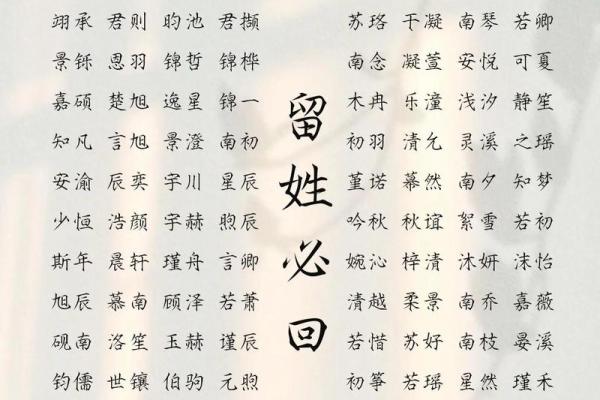 翊承 君则 昀池 君撷
景铄 恩羽 锦哲 锦桦
嘉硕 楚旭 逸星 锦一
知凡 言旭 景澄 南初
安渝 辰奕 宇川 星辰
少恒 浩颜 宇赫 煦辰
斯年 晨轩 瑾舟 言卿
旭辰 慕南 顾泽 若萧
砚南 洛笙 玉赫 谨辰
钧儒 世镶 伯驹 元煦
留姓必回
苏珞 于凝 南琴 若卿
南念 凝萱 安悦 可夏
木冉 乐潼 浅汐 静笙
初羽 清允 灵溪 之瑶
堇诺 幕然 南夕 知梦
吟秋 秋谊 絮雪 若初
婉沁 梓清 沐妍 沫怡
清越 柔景 南乔 嘉薇
若惜 苏好 南枝 晏溪
初筝 若瑶 星然 瑾禾